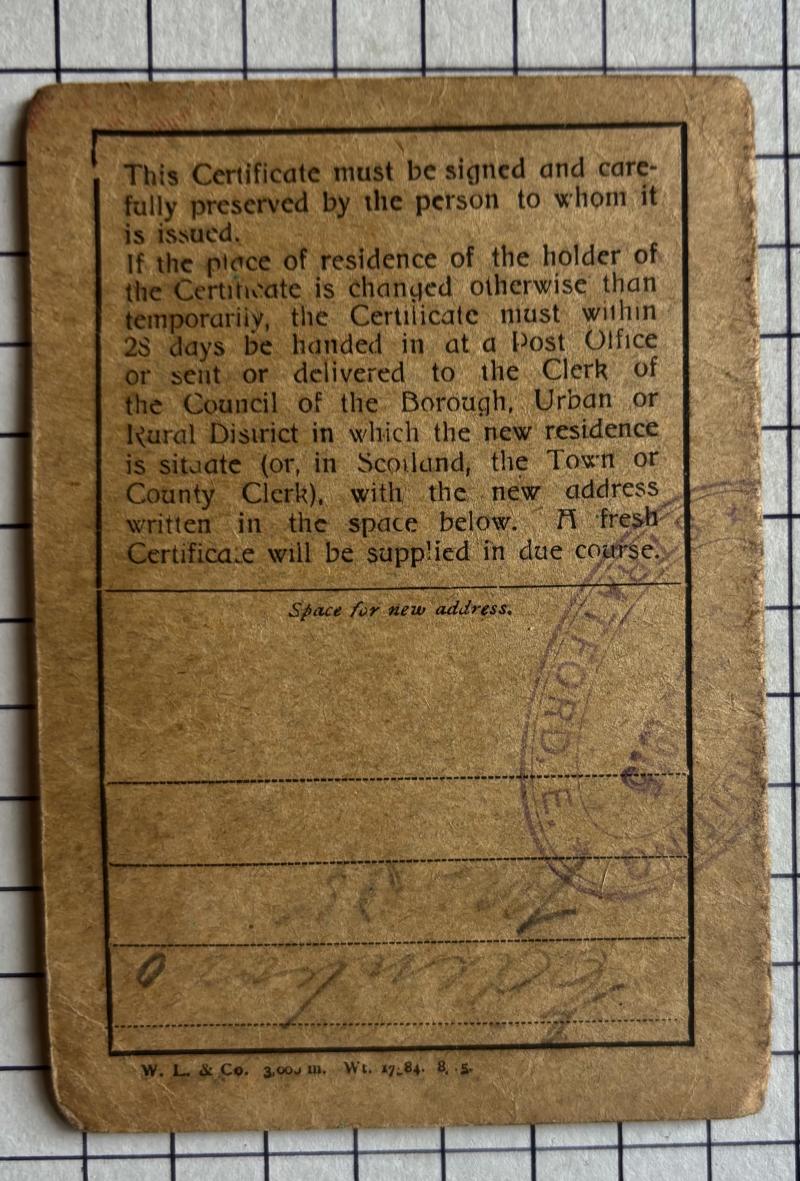 This Certificate must be signed and care-
fully preserved by the person to whom it
is issued.
If the place of residence of the holder of
the Certificate is changed otherwise than
temporarily, the Certificate must within
28 days be handed in at a Post Office
or sent or delivered to the Clerk of
the Council of the Borough, Urban or
Rural District in which the new residence
is situate (or, in Scotland, the Town or
County Clerk), with the new address
written in the space below. A fresh
Certificate will be supplied in due course.
Space for new address.
STRATFORD, E.
1915
W. L. & Co. 3,000 m. Wt.